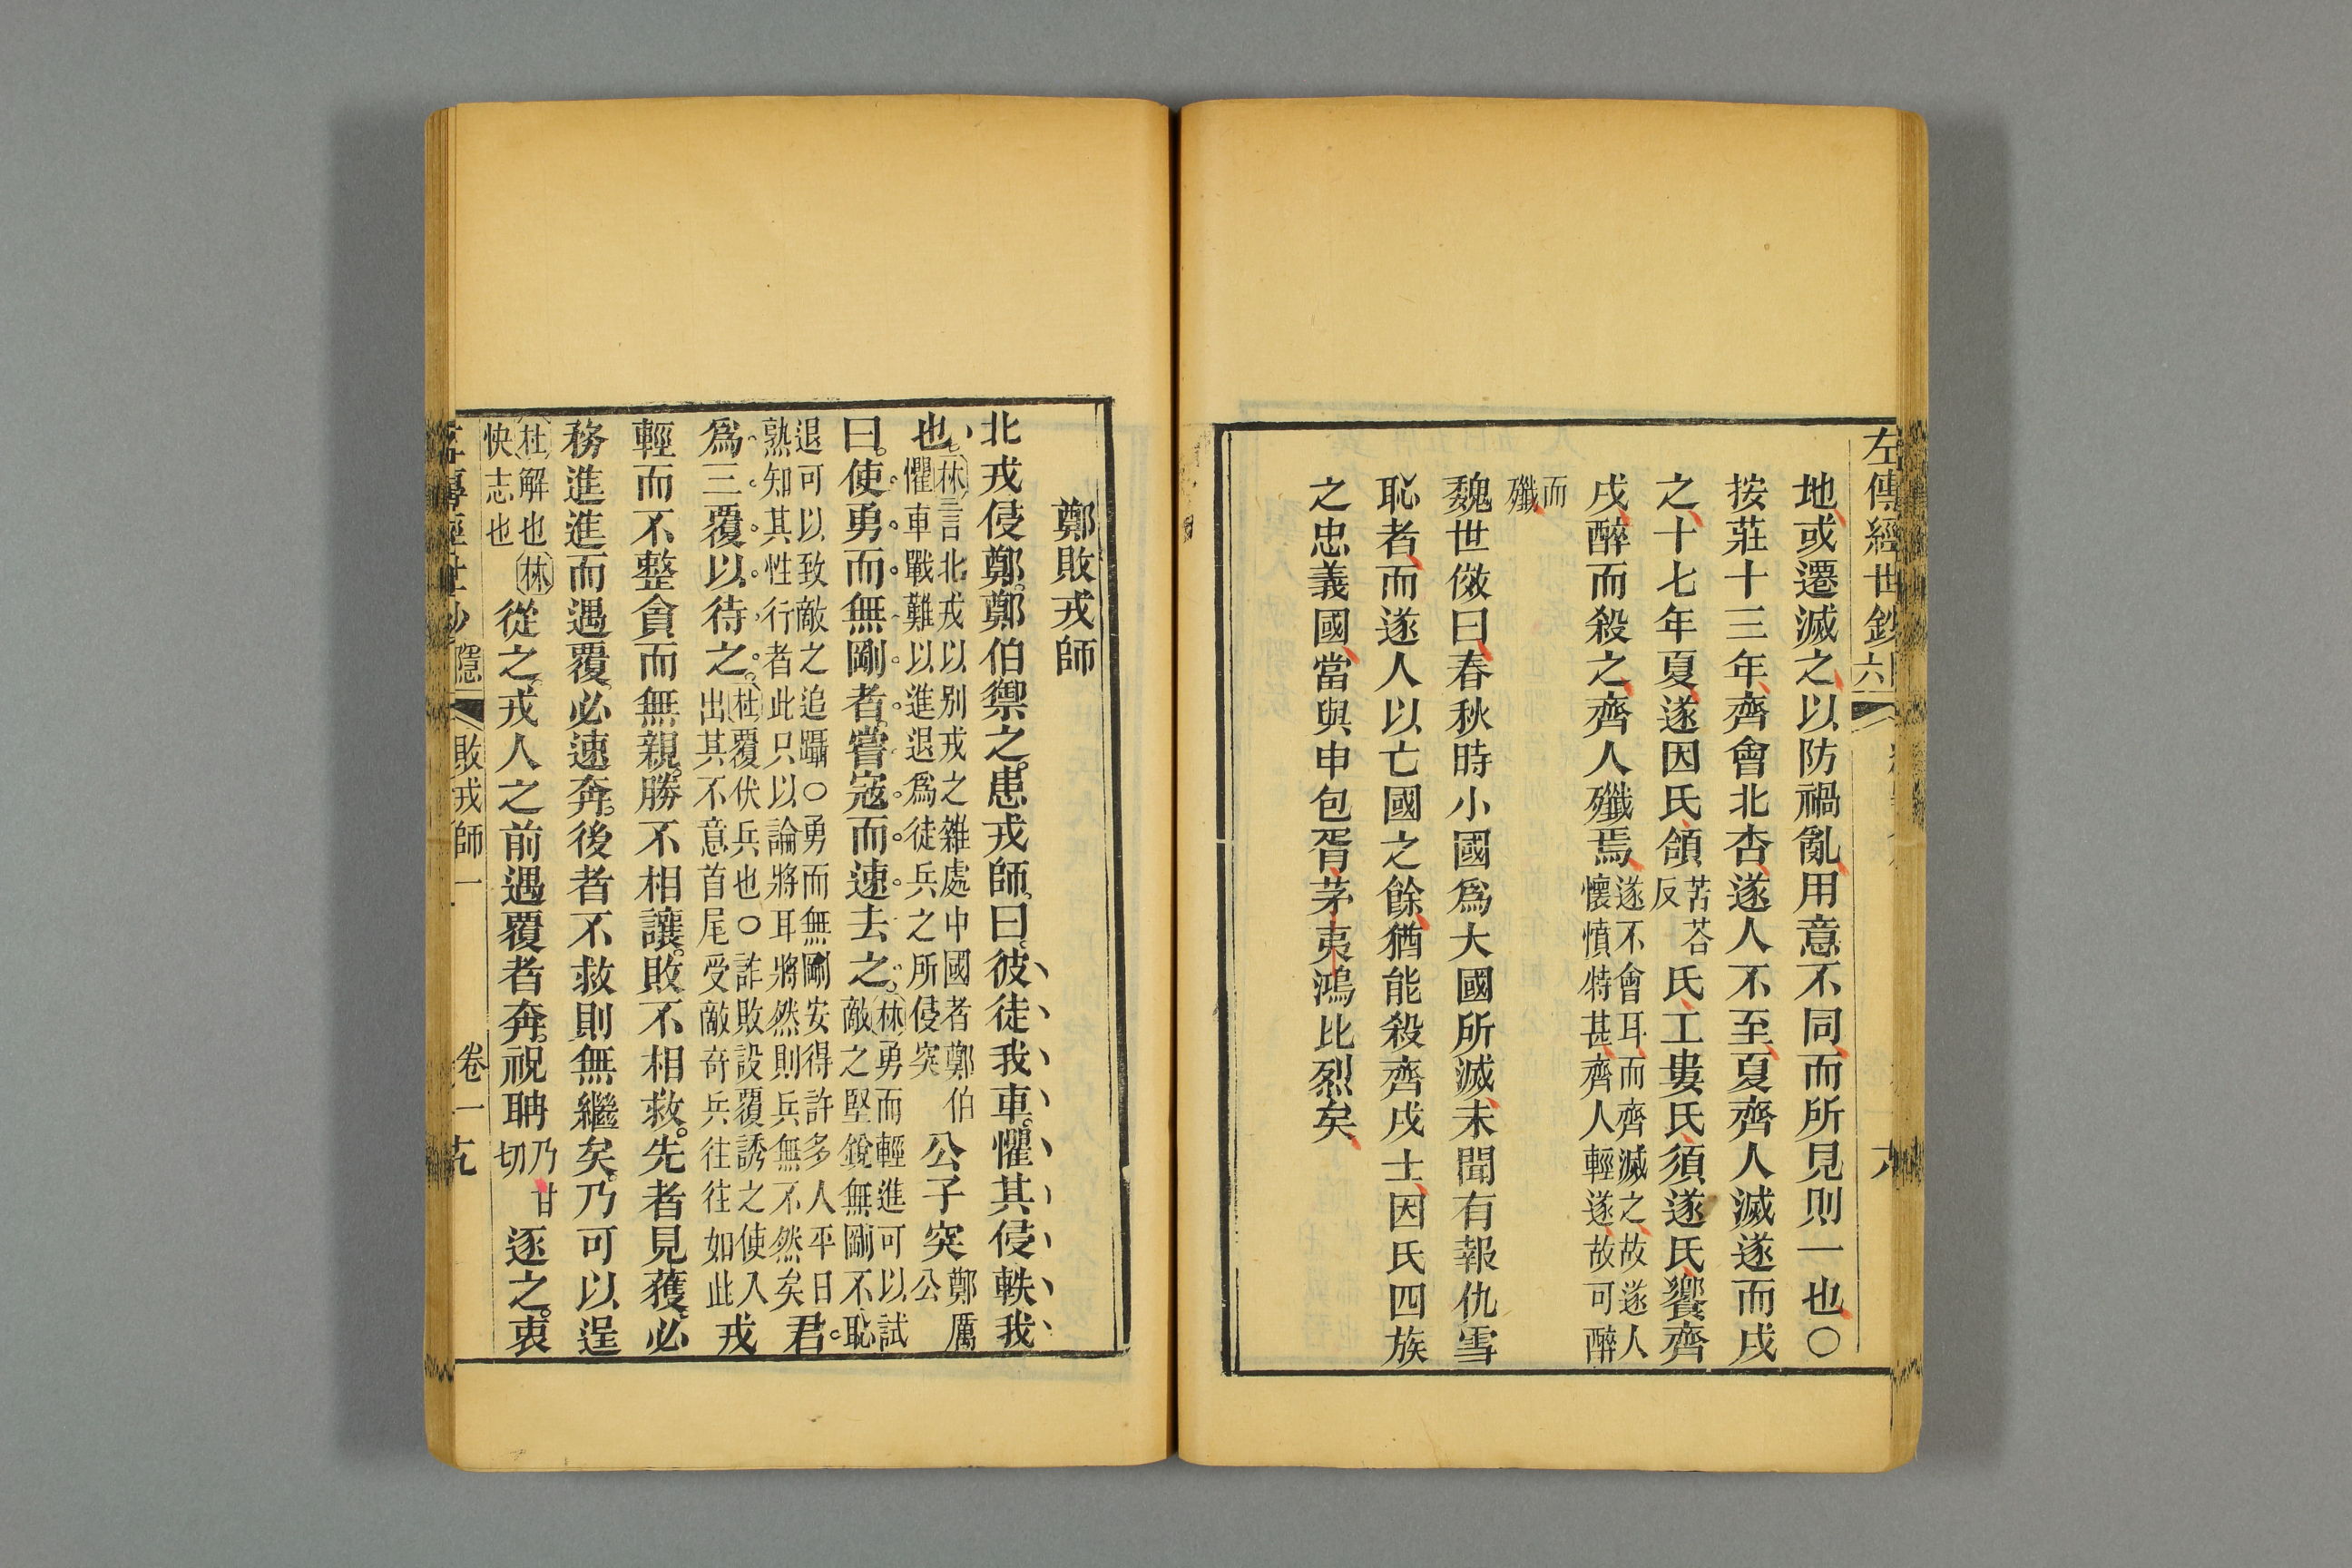 左傳經世鈔
地或遷滅之以防禍亂用意不同而所見則一也〇
按莊十三年齊會北杏遂人不至夏齊人滅遂而戍
之十七年夏遂因氏頜苦荅反氏工婁氏須遂氏饗齊
戍醉而殺之齊人殲焉遂不會耳而齊滅之故遂人懷憤特甚齊人輕遂故可醉
而殲
魏世傚曰春秋時小國爲大國所滅未聞有報仇雪
恥者而遂人以亡國之餘猶能殺齊戍士因氏四族
之忠義國當與申包胥茅夷鴻比烈矣
鄭敗戎師
北戎侵鄭鄭伯禦之患戎師曰彼徒我車懼其侵軼我
也林言北戎以别戎之雜處中國者鄭伯懼車戰難以進退爲徒兵之所侵突公子突鄭厲公
曰使勇而無剛者嘗寇而速去之林勇而輕進可以試敵之堅銳無剛不恥
退可以致敵之追躡〇勇而無剛安得許多人平日熟知其性行者此只以論將耳將然則兵無不然矣君
爲三覆以待之杜覆伏兵也〇詐敗設覆誘之使入出其不意首尾受敵奇兵往往如此戎
輕而不整貪而無親勝不相讓敗不相救先者見獲必
務進進而遇覆必速奔後者不救則無繼矣乃可以逞
杜解也林快志也從之戎人之前遇覆者奔祝聃乃甘切逐之衷
隱 敗戎師一 卷一